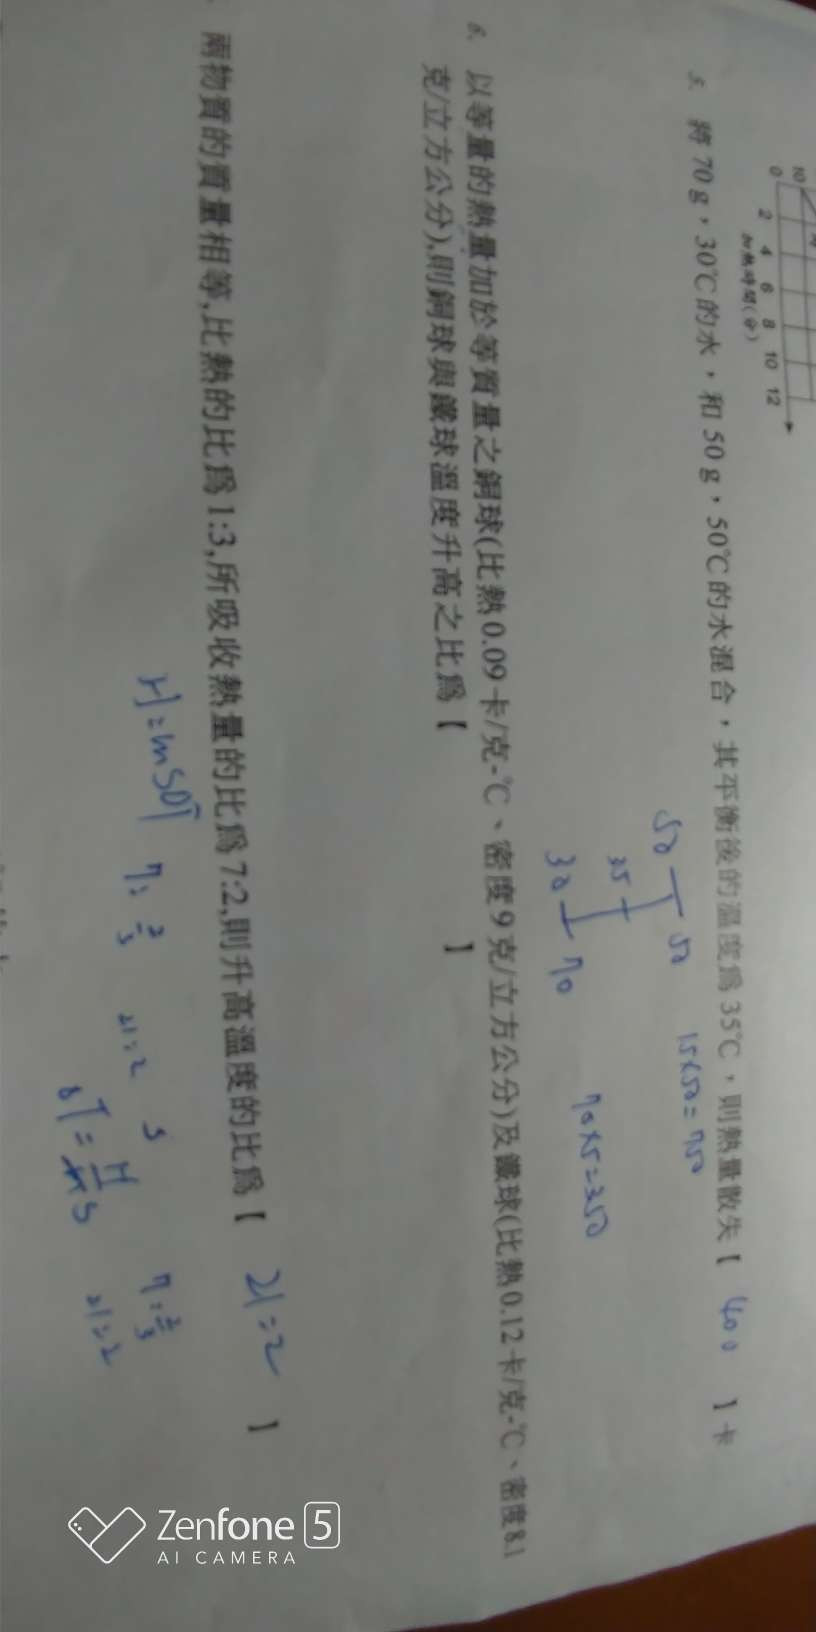 10
0 2 4 6 8 10 12
加熱時間(分)
5. 將70g，30℃的水，和50g，50℃的水混合，其平衡後的溫度為35℃，則熱量散失【 400 】卡
50 50 15×50=750
35
30 70 70×5=350
6. 以等量的熱量加於等質量之銅球(比熱0.09卡/克-℃、密度9克/立方公分)及鐵球(比熱0.12卡/克-℃、密度8.1
克/立方公分),則銅球與鐵球溫度升高之比為【 】
兩物質的質量相等,比熱的比為1:3,所吸收熱量的比為7:2,則升高溫度的比為【 21:2 】
H=msΔT 7:2/3 21:2 S 7:2/3
ΔT=H/ms 21:2
Zenfone 5
AI CAMERA